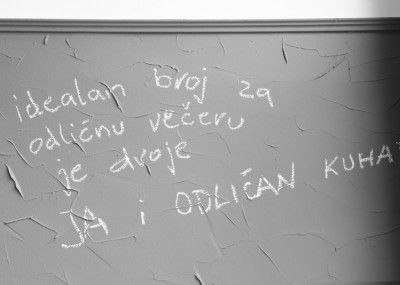 idealan broj za
odličnu večeru
je dvoje
JA i ODLIČAN KUHA